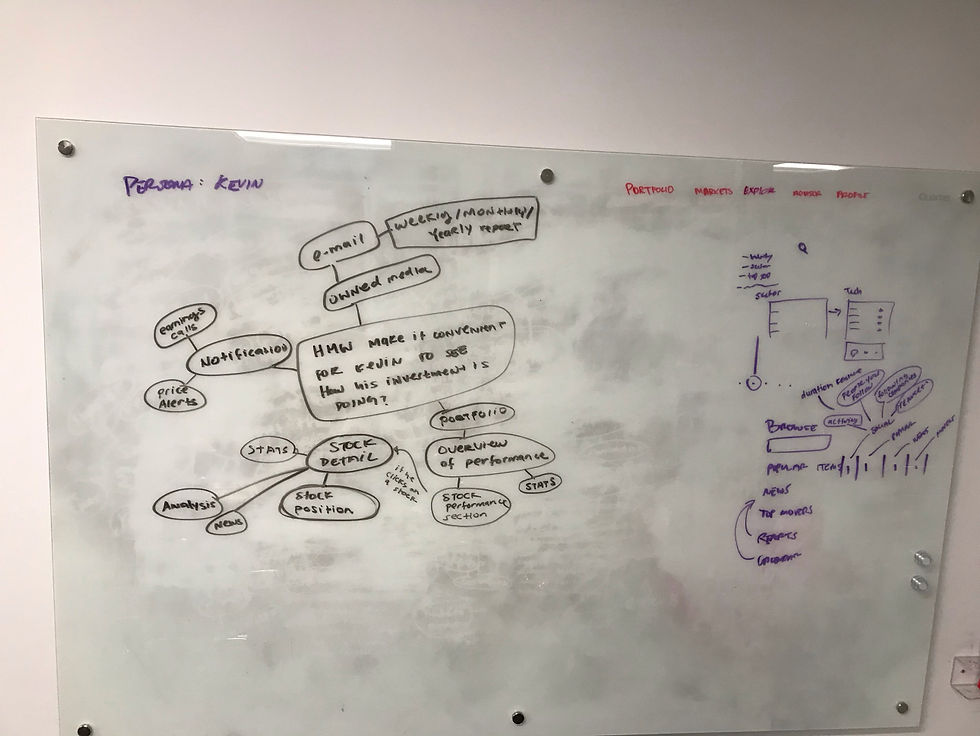 PERSONA: KEVIN
PORTFOLIO MARKETS EXPLORE ADVISOR PROFILE
e-mail
WEEKLY/MONTHLY/
Yearly report
OWNED MEDIA
earnings
calls
Notification
price
Alerts
HMW MAKE IT CONVENIENT
FOR KEVIN TO SEE
HOW HIS INVESTMENT IS
DOING?
PORTFOLIO
OVERVIEW
of performance
STATS
STOCK
performance
section
if he
clicks on
a stock
STOCK
DETAIL
STATS
Analysis
NEWS
Stock
position
Sector
Tech
duration feature
activity
SOCIAL
BROWSE
POPULAR ITEMS
POPULAR
NEWS
NEWS
TOP MOVERS
REPORTS
CALENDAR